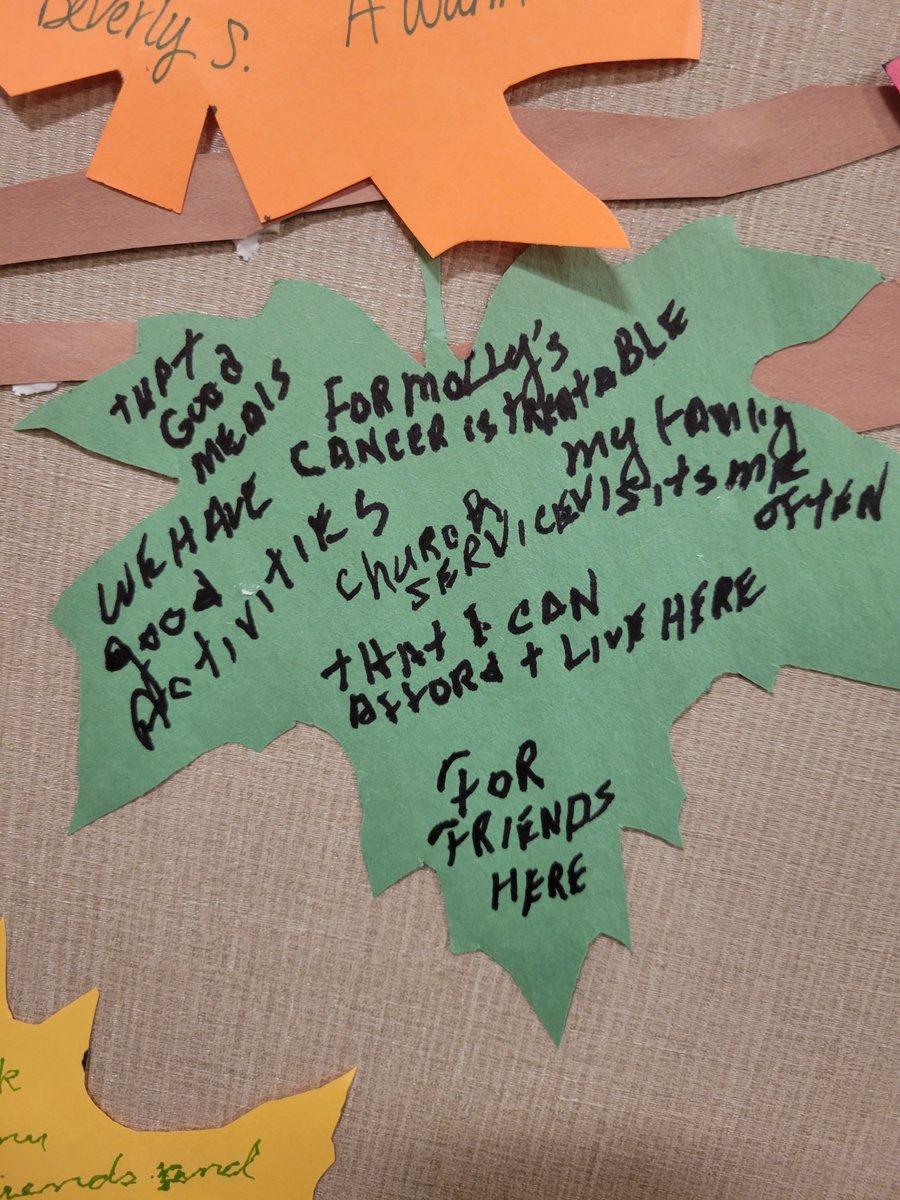 Beverly S.
A Warm
THAT
GOOD
MEALS
WE HAVE
good
ACTIVITIES
FOR MOLLY'S
CANCER IS TREATABLE
CHURCH
SERVICE
my family
VISITS ME
OFTEN
THAT I CAN
AFFORD + LIVE HERE
FOR
FRIENDS
HERE
and